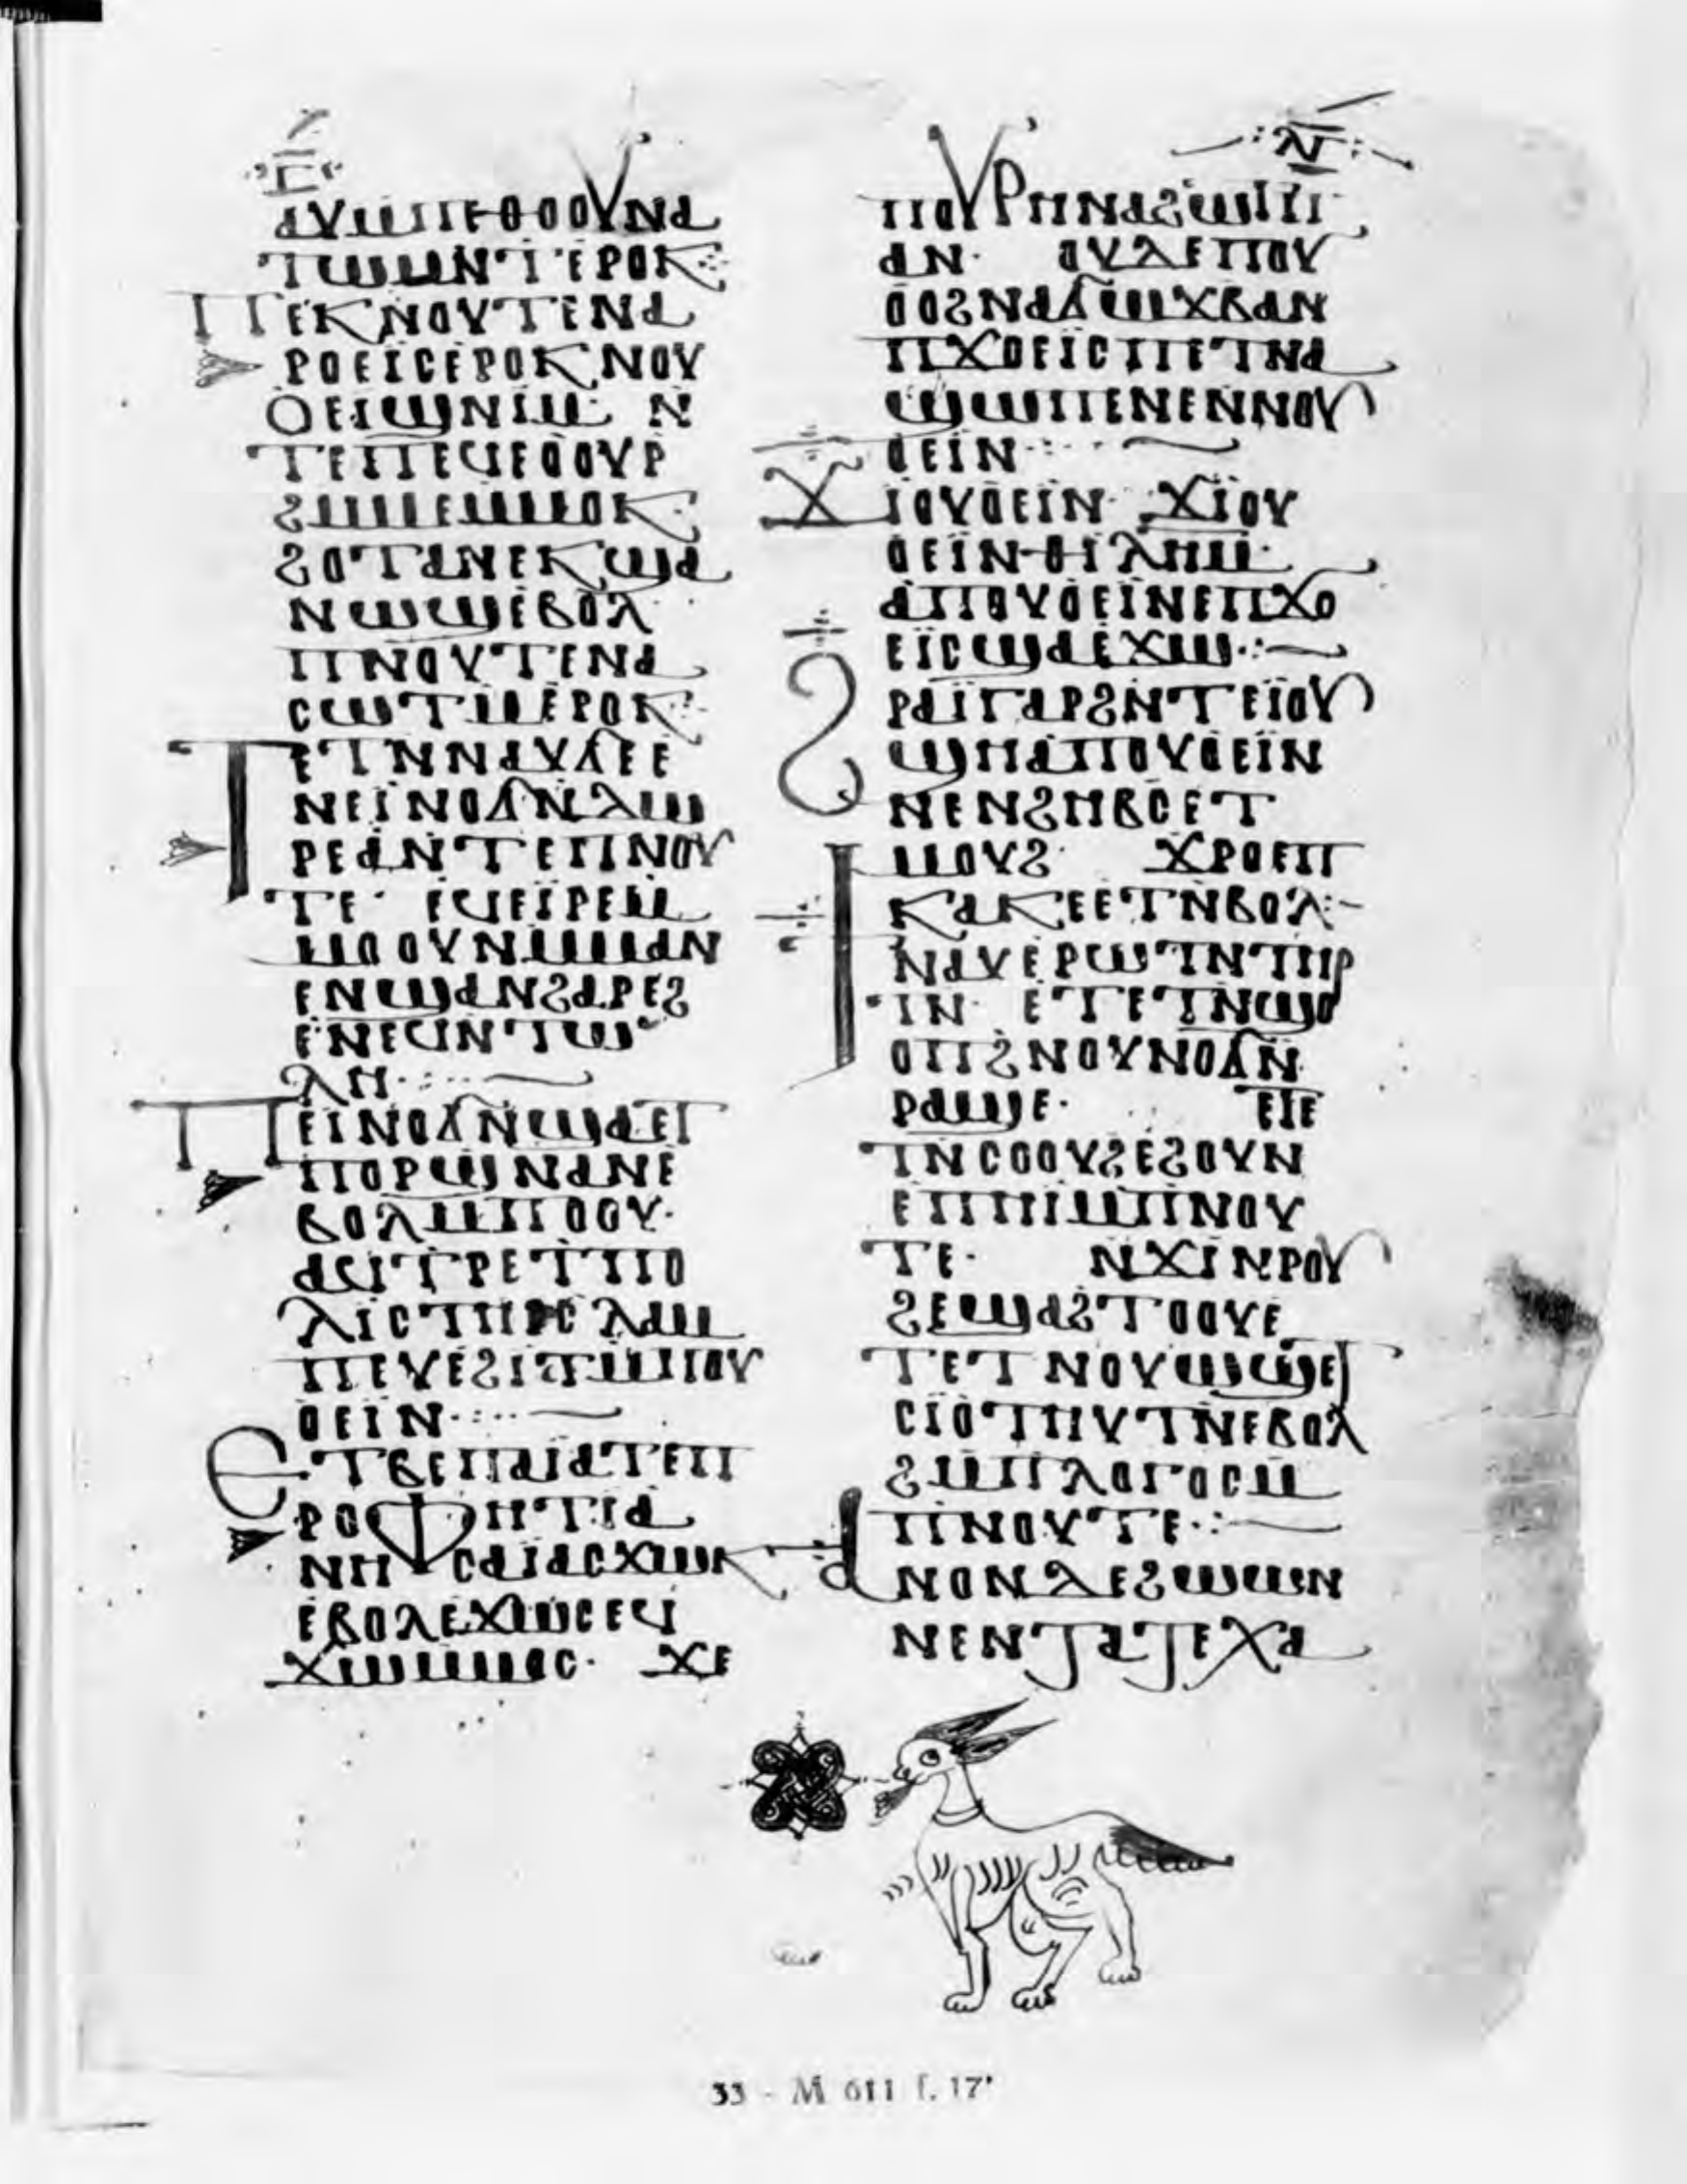 Ⲅ
ⲁⲩⲱⲡⲉⲟⲟⲟⲩⲛⲁ
ⲧⲱⲙⲛⲧⲉⲣⲟⲕ
ⲡⲉⲕⲛⲟⲩⲧⲉⲛⲁ
ⲣⲟⲉⲓⲥⲉⲣⲟⲕⲛⲟⲩ
ⲟⲉⲓϣⲛⲓⲙ· ⲛ
ⲧⲉⲡⲉϥⲉⲟⲟⲩⲣ
ϩⲙⲙⲉⲙⲙⲟⲕ
ϩⲟⲧⲁⲛⲉⲕϣⲁ
ⲛⲱϣⲉⲃⲟⲗ
ⲡⲛⲟⲩⲧⲉⲛⲁ
ⲥⲱⲧⲙⲉⲣⲟⲕ
ⲧⲉⲧⲛⲛⲁⲩϭⲉⲉ
ⲛⲉⲓⲛⲟϭⲛⲇⲱ
ⲣⲉⲁⲛⲧⲉⲡⲛⲟⲩ
ⲧⲉ· ⲉϥⲉⲓⲣⲉⲙ
ⲙⲟⲟⲩⲛⲙⲙⲁⲛ
ⲉⲛϣⲁⲛϩⲁⲣⲉϩ
ⲉⲛⲉϥⲛⲧⲱ
ⲗⲏ
ⲡⲉⲓⲛⲟϭⲛϣⲁⲉⲓ
ⲡⲟⲣϣⲛⲁⲛⲉ
ⲃⲟⲗⲙⲡⲟⲟⲩ·
ⲁϥⲧⲣⲉⲧⲡⲟ
ⲗⲓⲥⲧⲏⲣⲥⲗⲁⲙ
ⲡⲉⲩⲉϩⲓⲧⲙⲡⲟⲩ
ⲟⲉⲓⲛ
ⲉⲧⲃⲉⲡⲁⲓⲁⲧⲉⲡ
ⲣⲟⲫⲏⲧⲓⲁ
ⲛⲏⲥⲁⲓⲁⲥϫⲱⲕ
ⲉⲃⲟⲗⲉϫⲱⲥⲉϥ
ϫⲱⲙⲙⲟⲥ· ϫⲉ
Ⲗ
ⲡⲟⲩⲣⲏⲛⲁϩⲱⲧⲡ
ⲁⲛ· ⲟⲩⲇⲉⲡⲟⲩ
ⲟⲟϩⲛⲁϭⲱϫⲃⲁⲛ
ⲡϫⲟⲉⲓⲥⲡⲉⲧⲛⲁ
ϣⲱⲡⲉⲛⲉⲛⲛⲟⲩ
ⲟⲉⲓⲛ
ϫⲓⲟⲩⲟⲉⲓⲛ· ϫⲓⲟⲩ
ⲟⲉⲓⲛⲑⲓⲗⲏⲙ·
ⲁⲡⲟⲩⲟⲉⲓⲛⲉⲡϫⲟ
ⲉⲓⲥϣⲁⲉϫⲱ
ϩⲣⲁⲓⲅⲁⲣϩⲛⲧⲉⲓⲟⲩ
ϣⲏⲁⲡⲟⲩⲟⲉⲓⲛ
ⲛⲉⲛϩⲏⲃⲥⲉⲧ
ⲙⲟⲩϩ· ϫⲣⲟⲉⲡ
ⲕⲁⲕⲉⲉⲧⲛⲃⲟⲗ
ϯⲛⲁⲩⲉⲣⲱⲧⲛⲧⲏⲣ
ⲧⲛ· ⲉⲧⲉⲧⲛϣⲟ
ⲟⲡϩⲛⲟⲩⲛⲟϭⲛ
ⲣⲁϣⲉ· ⲉⲧⲉ
ⲧⲛⲥⲟⲟⲩϩⲉϩⲟⲩⲛ
ⲉⲡⲏⲓⲙⲡⲛⲟⲩ
ⲧⲉ· ⲛϫⲓⲛⲣⲟⲩ
ϩⲉϣⲁϩⲧⲟⲟⲩⲉ
ⲧⲉⲧⲛⲟⲩⲱϣⲉⲓ
ⲥⲓⲟⲧⲏⲩⲧⲛⲉⲃⲟⲗ
ϩⲙⲡⲗⲟⲅⲟⲥⲙ
ⲡⲛⲟⲩⲧⲉ
ⲁⲛⲟⲛⲇⲉϩⲱⲱⲛ
ⲛⲉⲛⲧⲁⲧⲉⲭⲁ
33 - M 611 f. 17ʳ